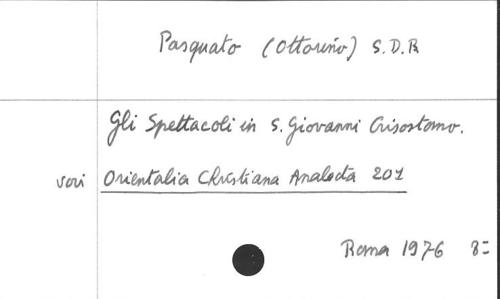 Pasquato (Ottorino) S.D.B
Gli Spettacoli in S. Giovanni Crisostomo.
Orientalia Christiana Analecta 201
Roma 1976 8=